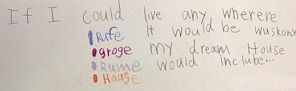 If I could live any wherere
Rufe It would be wuskonn
groge my dream House
Rume would inclube...
Haage